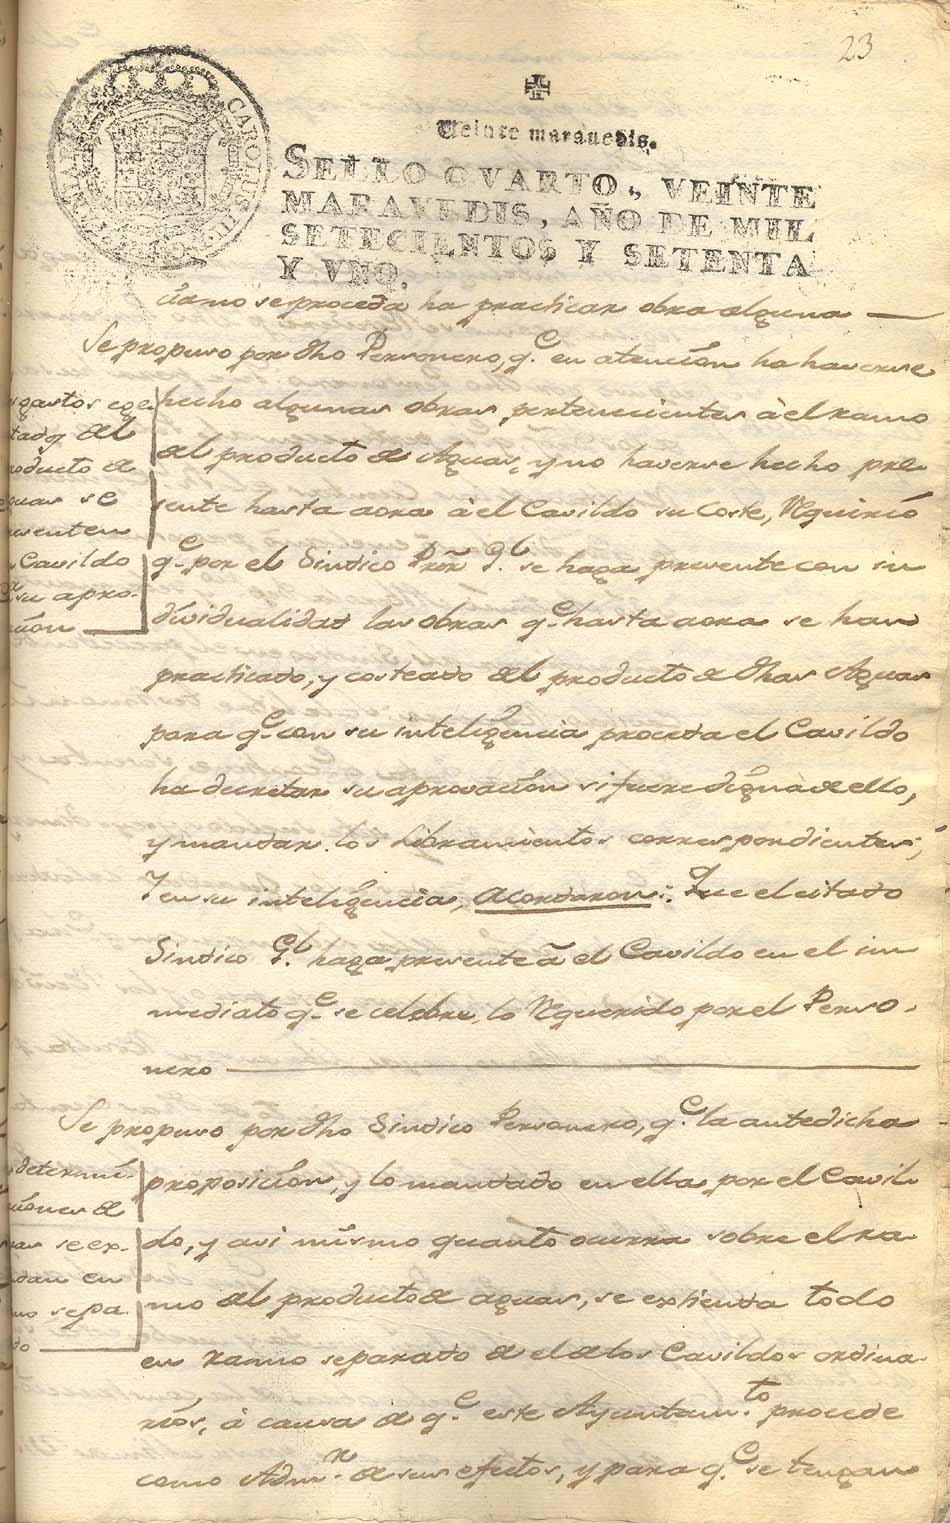 23
CAROLUS III
Veinte maravedis.
SELLO QVARTO, VEINTE
MARAVEDIS, AÑO DE MIL
SETECIENTOS Y SETENTA
Y VNO.
ramo se proceda ha practicar obra alguna
Se propuso por dho Personero, q.e en atencion ha haverse
hecho algunas obras, pertenecientes à el ramo
del producto de Aguas, y no haverse hecho pre
sente hasta aora à el Cavildo su Coste, Requirió
q.e por el Sindico Pror Gl. se haga presente con in
dividualidad las obras q.e hasta aora se han
practicado, y costeado del producto de dhas Aguas
para q.e con su inteligencia proceda el Cavildo
ha decretar su aprovacion si fuere digna de ello,
y mandar los Libramientos correspondientes;
Y en su inteligencia, acordaron: Que el citado
Sindico Gl. haga presente a el Cavildo en el in
mediato q.e se celebre, lo Requerido por el Perso-
nero
gastos ege.
tados del
producto de
guas se
esenten
Cavildo
su apro-
Se propuso por dho Sindico Personero, q.e la antedicha
proposicion, y lo mandado en ella por el Cavil
do, y asi mismo quanto ocurra sobre el ra-
mo del producto de aguas, se extienda todo
en ramo separado de el de los Cavildos ordina-
rios, à causa de q.e este Ayuntam.to procede
como Adm.r de sus efectos, y para q.e se tengan
determi-
ciones de
uas se ex-
dan en
mo sepa
do